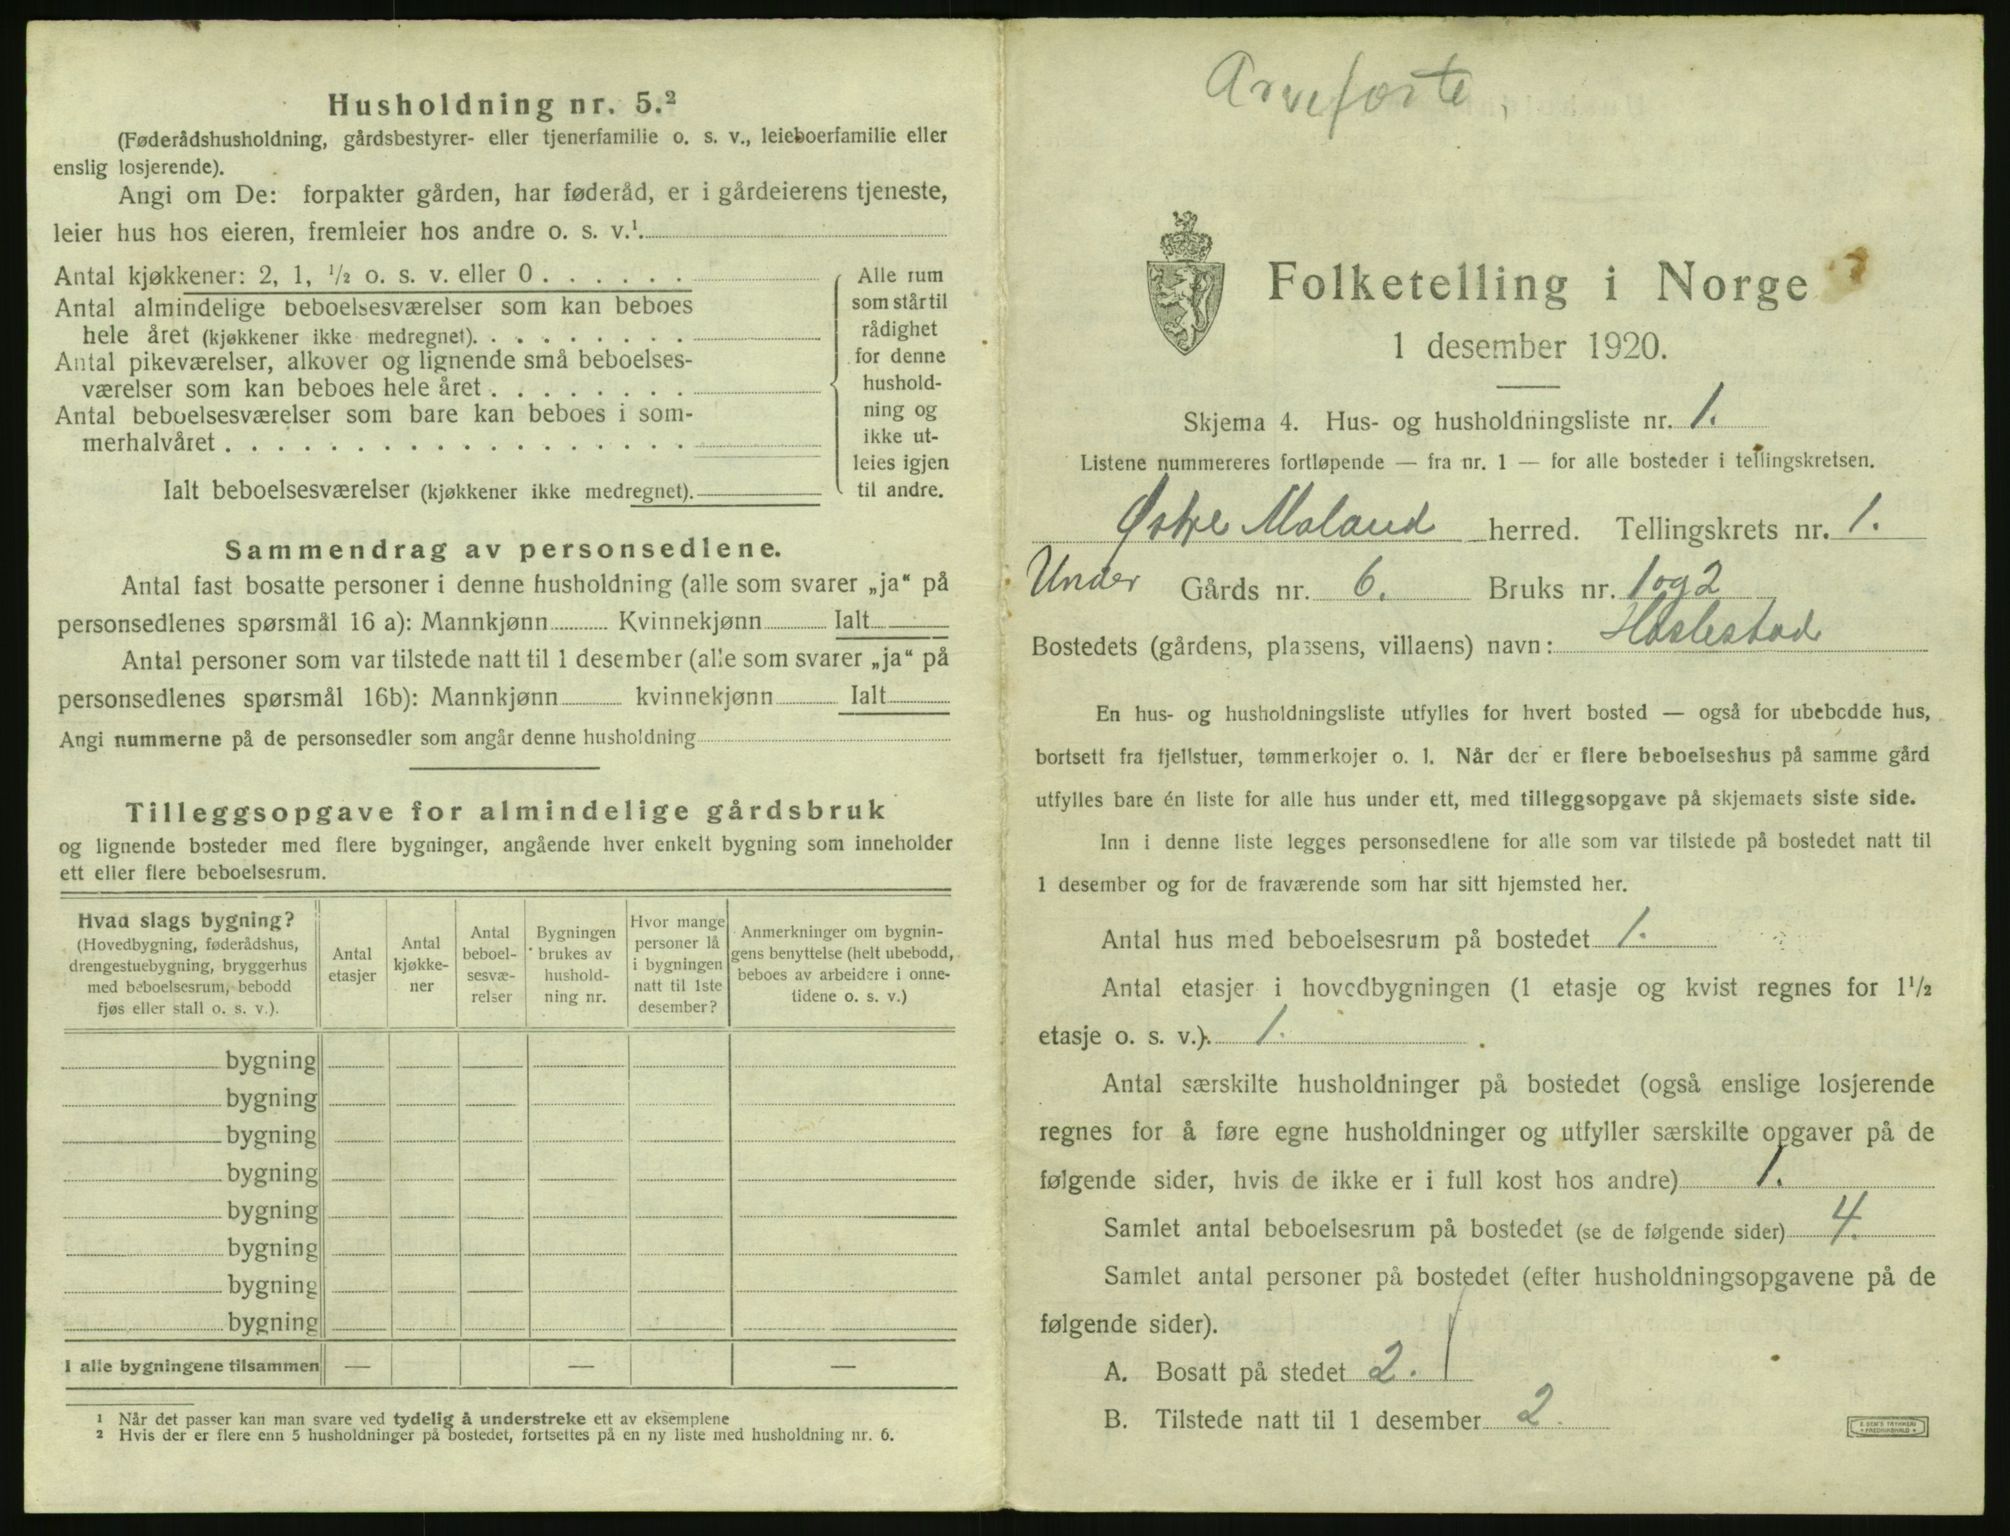 Husholdning nr. 5.²
(Føderådshusholdning, gårdsbestyrer- eller tjenerfamilie o. s. v., leieboerfamilie eller
enslig losjerende).
Angi om De: forpakter gården, har føderåd, er i gårdeierens tjeneste,
leier hus hos eieren, fremleier hos andre o. s. v.¹
Antal kjøkkener: 2, 1, ½ o. s. v. eller 0 . . . . . .
Antal almindelige beboelsesværelser som kan beboes
hele året (kjøkkener ikke medregnet). . . . . . . . .
Antal pikeværelser, alkover og lignende små beboelses-
værelser som kan beboes hele året . . . . . . . .
Antal beboelsesværelser som bare kan beboes i som-
merhalvåret . . . . . . . . . . . . . . . . . .
Ialt beboelsesværelser (kjøkkener ikke medregnet).
Alle rum
som står til
rådighet
for denne
hushold-
ning og
ikke ut-
leies igjen
til andre.
Sammendrag av personsedlene.
Antal fast bosatte personer i denne husholdning (alle som svarer „ja“ på
personsedlenes spørsmål 16 a): Mannkjønn Kvinnekjønn Ialt
Antal personer som var tilstede natt til 1 desember (alle som svarer „ja“ på
personsedlenes spørsmål 16b): Mannkjønn kvinnekjønn Ialt
Angi nummerne på de personsedler som angår denne husholdning
Tilleggsopgave for almindelige gårdsbruk
og lignende bosteder med flere bygninger, angående hver enkelt bygning som inneholder
ett eller flere beboelsesrum.
Hvad slags bygning?
(Hovedbygning, føderådshus,
drengestuebygning, bryggerhus
med beboelsesrum, bebodd
fjøs eller stall o. s. v.).
Antal
etasjer
Antal
kjøkke-
ner
Antal
beboel-
sesvæ-
relser
Bygningen
brukes av
hushold-
ning nr.
Hvor mange
personer lå
i bygningen
natt til 1ste
desember?
Anmerkninger om bygnin-
gens benyttelse (helt ubebodd,
beboes av arbeidere i onne-
tidene o. s. v.)
bygning
bygning
bygning
bygning
bygning
bygning
bygning
bygning
I alle bygningene tilsammen — — —
¹ Når det passer kan man svare ved tydelig å understreke ett av eksemplene
² Hvis der er flere enn 5 husholdninger på bostedet, fortsettes på en ny liste med husholdning nr. 6.
Folketelling i Norge
1 desember 1920.
Skjema 4. Hus- og husholdningsliste nr. 1.
Listene nummereres fortløpende — fra nr. 1 — for alle bosteder i tellingskretsen.
Østre Moland herred. Tellingskrets nr. 1.
Under Gårds nr. 6. Bruks nr. 1 og 2
Bostedets (gårdens, plassens, villaens) navn: Haslestad
En hus- og husholdningsliste utfylles for hvert bosted — også for ubebodde hus,
bortsett fra fjellstuer, tømmerkojer o. l. Når der er flere beboelseshus på samme gård
utfylles bare én liste for alle hus under ett, med tilleggsopgave på skjemaets siste side.
Inn i denne liste legges personsedlene for alle som var tilstede på bostedet natt til
1 desember og for de fraværende som har sitt hjemsted her.
Antal hus med beboelsesrum på bostedet 1.
Antal etasjer i hovedbygningen (1 etasje og kvist regnes for 1½
etasje o. s. v.). 1.
Antal særskilte husholdninger på bostedet (også enslige losjerende
regnes for å føre egne husholdninger og utfyller særskilte opgaver på de
følgende sider, hvis de ikke er i full kost hos andre) 1.
Samlet antal beboelsesrum på bostedet (se de følgende sider) 4.
Samlet antal personer på bostedet (efter husholdningsopgavene på de
følgende sider).
A. Bosatt på stedet 2.
B. Tilstede natt til 1 desember 2.